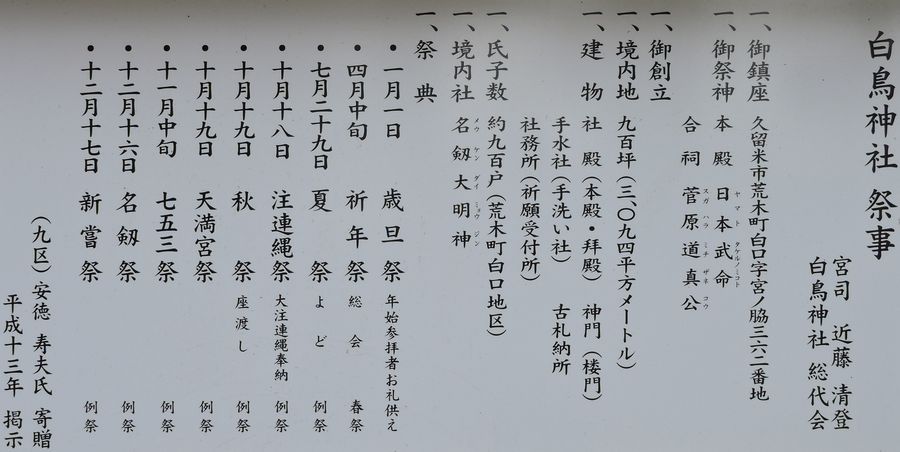 白鳥神社 祭事
宮司 近藤 清登
白鳥神社 総代会
一、御鎮座 久留米市荒木町白口字宮ノ脇三六二番地
一、御祭神 本殿 日本武命
ヤマト タケルノミコト
合祠 菅原道真公
スガ ハラ ミチ ザネ コウ
一、御創立
一、境内地 九百坪(三、〇九四平方メートル)
一、建物 社殿(本殿・拝殿) 神門(楼門)
手水社(手洗い社) 古札納所
社務所(祈願受付所)
一、氏子数 約九百戸(荒木町白口地区)
一、境内社 名剱大明神
メウ ケン ダイ ミョウ ジン
一、祭典
・一月一日 歳旦祭 年始参拝者お礼供え
・四月中旬 祈年祭 総会 春祭
・七月二十九日 夏祭 よど 例祭
・十月十八日 注連縄祭 大注連縄奉納
・十月十九日 秋祭 座渡し 例祭
・十月十九日 天満宮祭 例祭
・十一月中旬 七五三祭 例祭
・十二月十六日 名剱祭 例祭
・十二月十七日 新嘗祭 例祭
(九区)安徳 寿夫氏 寄贈
平成十三年 掲示